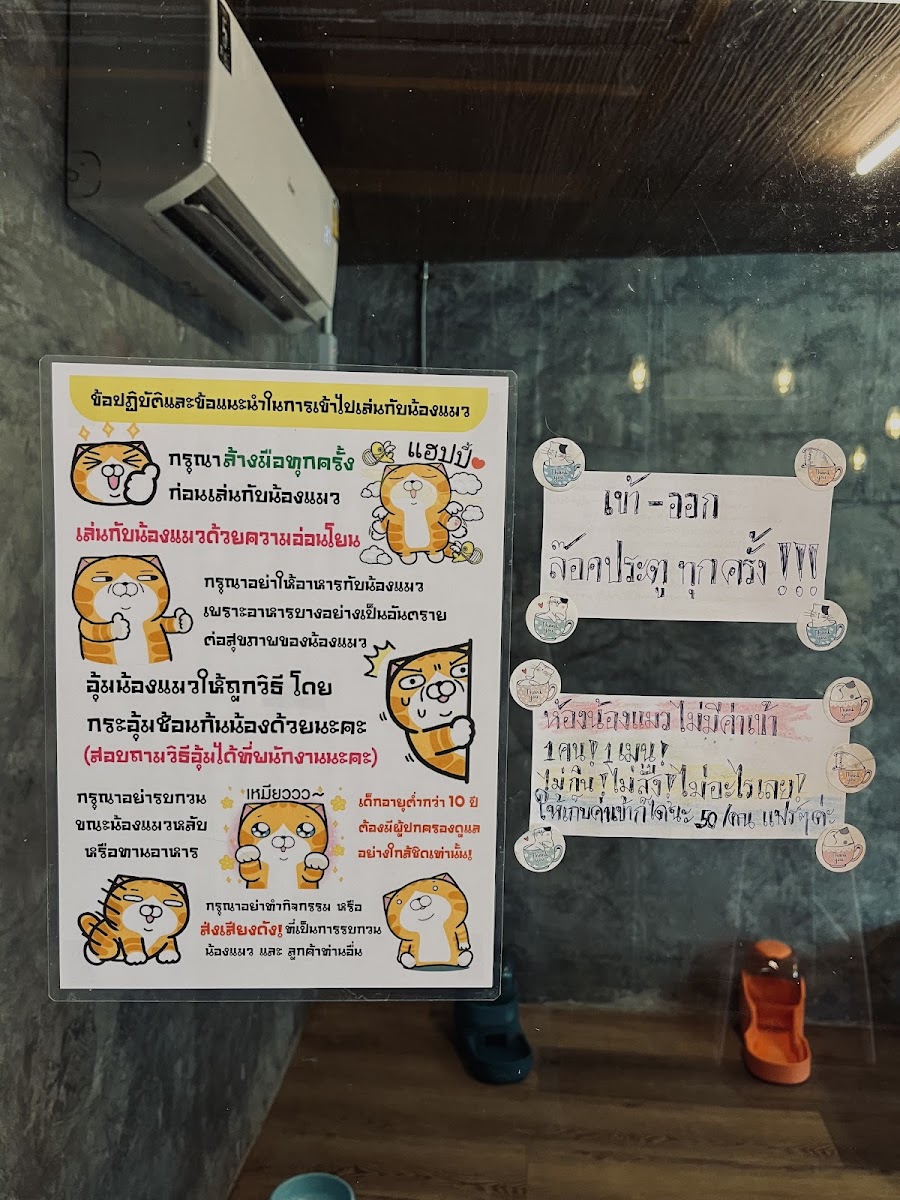 ข้อปฏิบัติและข้อแนะนำในการเข้าไปเล่นกับน้องแมว
กรุณาล้างมือทุกครั้ง
ก่อนเล่นกับน้องแมว
แฮปปี้
เล่นกับน้องแมวด้วยความอ่อนโยน
กรุณาอย่าให้อาหารกับน้องแมว
เพราะอาหารบางอย่างเป็นอันตราย
ต่อสุขภาพของน้องแมว
อุ้มน้องแมวให้ถูกวิธี โดย
กระอุ้มช้อนก้นน้องด้วยนะคะ
(สอบถามวิธีอุ้มได้ที่พนักงานนะคะ)
กรุณาอย่ารบกวน
ขณะน้องแมวหลับ
หรือทานอาหาร
เหมียววว~
เด็กอายุต่ำกว่า 10 ปี
ต้องมีผู้ปกครองดูแล
อย่างใกล้ชิดเท่านั้น!
กรุณาอย่าทำกิจกรรม หรือ
ส่งเสียงดัง! ที่เป็นการรบกวน
น้องแมว และ ลูกค้าท่านอื่น
เข้า - ออก
ล๊อคประตู ทุกครั้ง !!!
ห้องน้องแมว ไม่มีค่าเข้า
1 คน! 1 เมนู!
ไม่กิน! ไม่สั่ง! ไม่อะไรเลย!
ให้เก็บค่าเข้าก็ได้นะ 50 /คน แฟร์ๆ ค่ะ
Thank you
Thank you
Thank you
Thank you
Thank you
Thank you
Thank you
Thank you